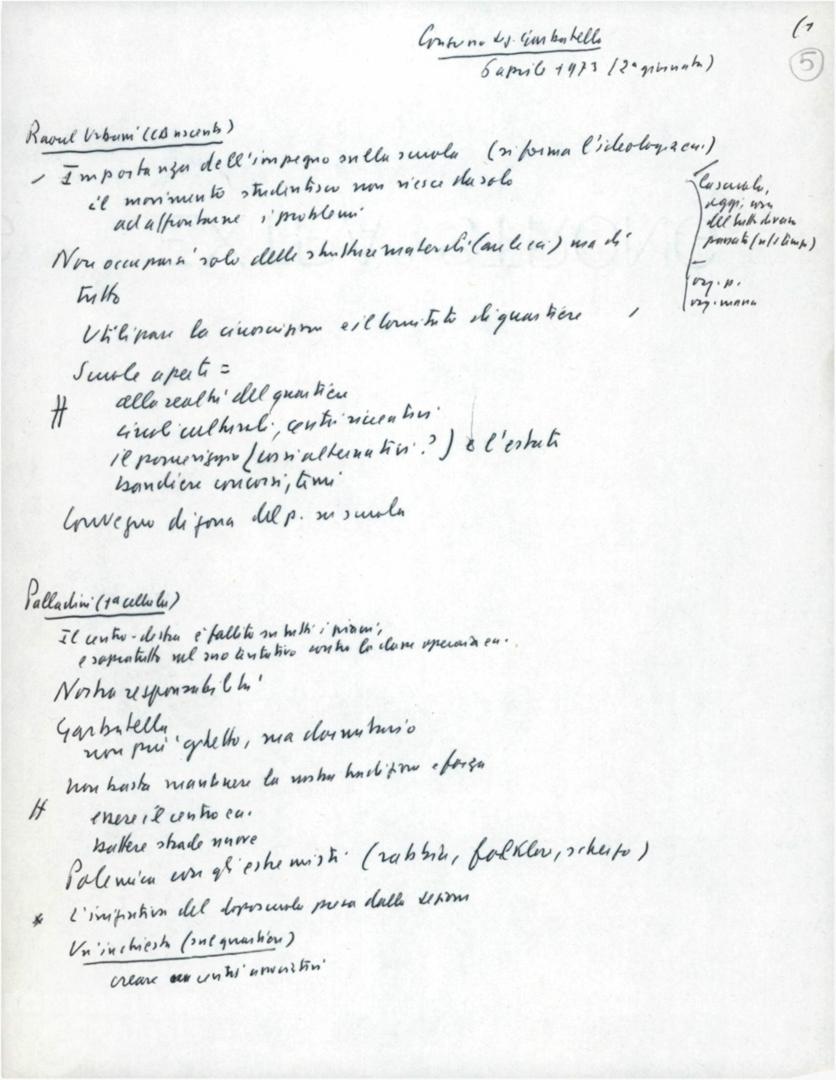 (1
5
Garbatella
6 aprile 1973 (2ª giornata)
Raoul Urbani (CD uscente)
Importanza dell'impegno sulla scuola (si forma l'ideologia ecc.)
il movimento studentesco non riesce da solo
ad affrontarne i problemi
la scuola,
oggi, con
del tutto diversa
passato
org. p.
org. massa
Non occuparsi solo delle strutture materiali (aule ecc.) ma di
tutto
Utilizzare la circoscrizione e il comitato di quartiere
Scuole aperte =
alla realtà del quartiere
circoli culturali, centri ricreativi
il pomeriggio (corsi alternativi?) e l'estate
bandiere concorsi, temi
Convegno di zona del p. su scuola
Palladini (1ª cellula)
Il centro-destra è fallito su tutti i piani,
e soprattutto nel suo tentativo contro la classe operaia ecc.
Nostra responsabilità
Garbatella
non più ghetto, ma dormitorio
non basta mantenere la nostra tradizione e forza
essere il centro ecc.
battere strade nuove
Polemica con gli estremisti (rabbia, folklor, scherzo)
* L'iniziativa del doposcuola presa dalla sezione
Un'inchiesta (sul quartiere)
creare centri associativi